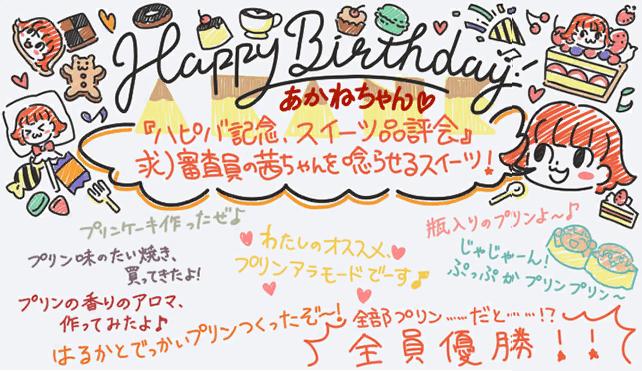 Happy Birthday!
あかねちゃん♡
『ハピバ記念、スイーツ品評会』
求)審査員の茜ちゃんを唸らせるスイーツ!
プリンケーキ作ったぜよ
プリン味のたい焼き、
買ってきたよ!
プリンの香りのアロマ、
作ってみたよ♪
はるかとでっかいプリンつくったぞ〜!
わたしのオススメ、
プリンアラモードでーす♪
瓶入りのプリンよ〜♪
じゃじゃーん!
ぷっぷかプリンプリン〜
全部プリン……だと……!?
全員優勝!!